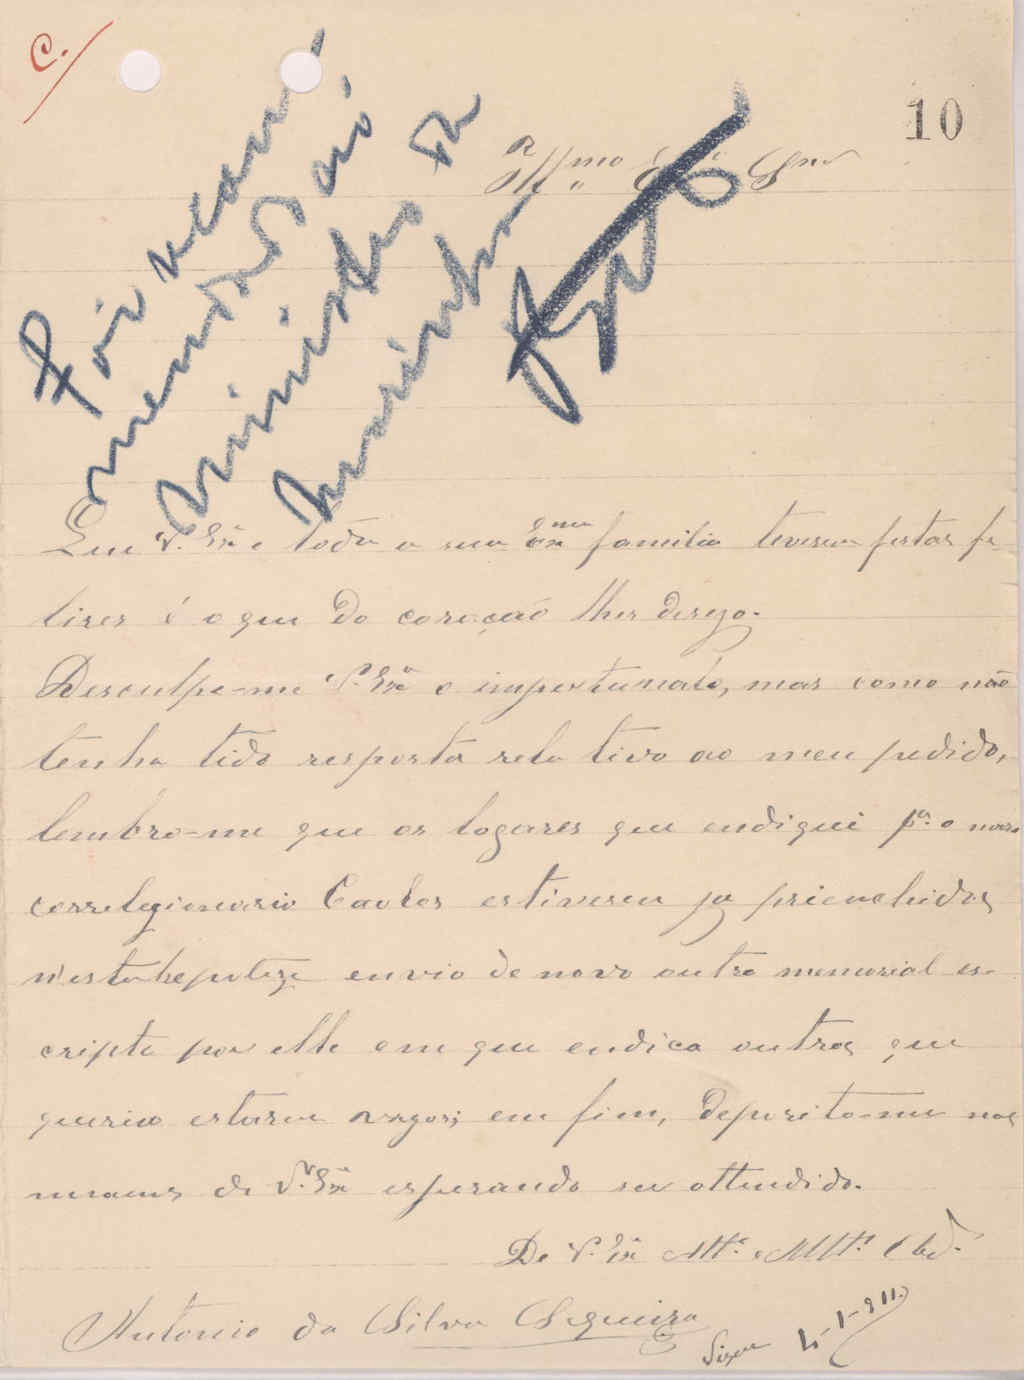 C.
10
Illmo Exmo Snr
Foi recom
mendado ao
Ministro da
Marinha
Que V. Exa e toda a sua Exma familia tivesem festas fe
lises é o que do coração lhes desejo.
Desculpe-me V. Exa o importunalo, mas como não
tenha tido resposta relativo ao meu pedido,
lembro-me que os logares que endiquei pa. o nosso
correlegionario Carlos estivesem ja prienchidos
n'esta hepoteze envio de novo outro memorial es-
cripto por elle em que endica outros que
querem estarem vagos; em fim, deposito-me nas
maons de V. Exa esperando ser attendido.
De V. Exa Atto. e Mtto. Obdo.
Antonio da Silva Sequeira
4-1-911